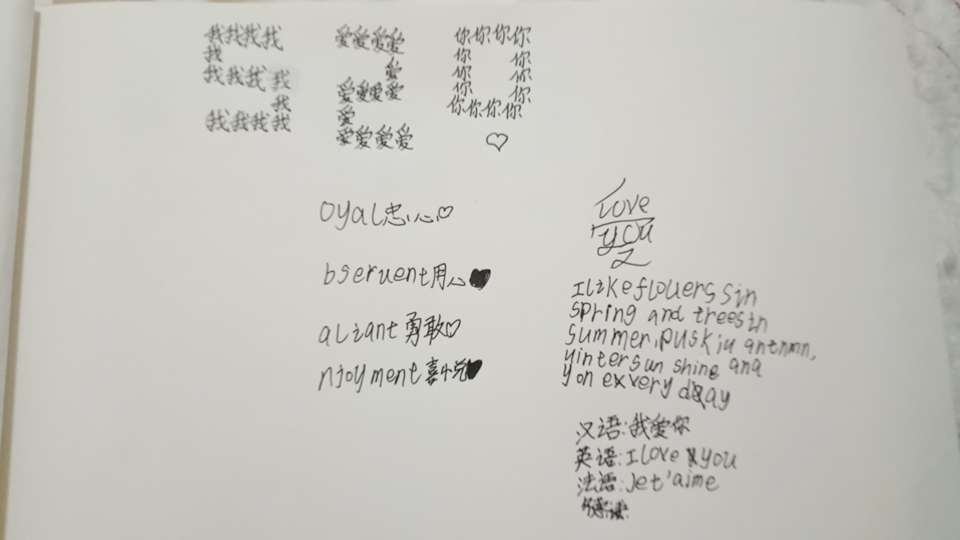 我我我我
我
我我我我
我
我我我我
爱爱爱爱
爱
爱爱爱爱
爱
爱爱爱爱
你你你你
你 你
你 你
你 你
你你你你
♡
oyal忠心♡
bseruent用心♥
aliant勇敢♡
njoyment喜悦♥
love
you
2
I like flouers sin
spring and trees in
summer, pusk iu antnmn,
yinter sun shine and
yon exvery day
汉语:我爱你
英语:I love you
法语:Je t'aime